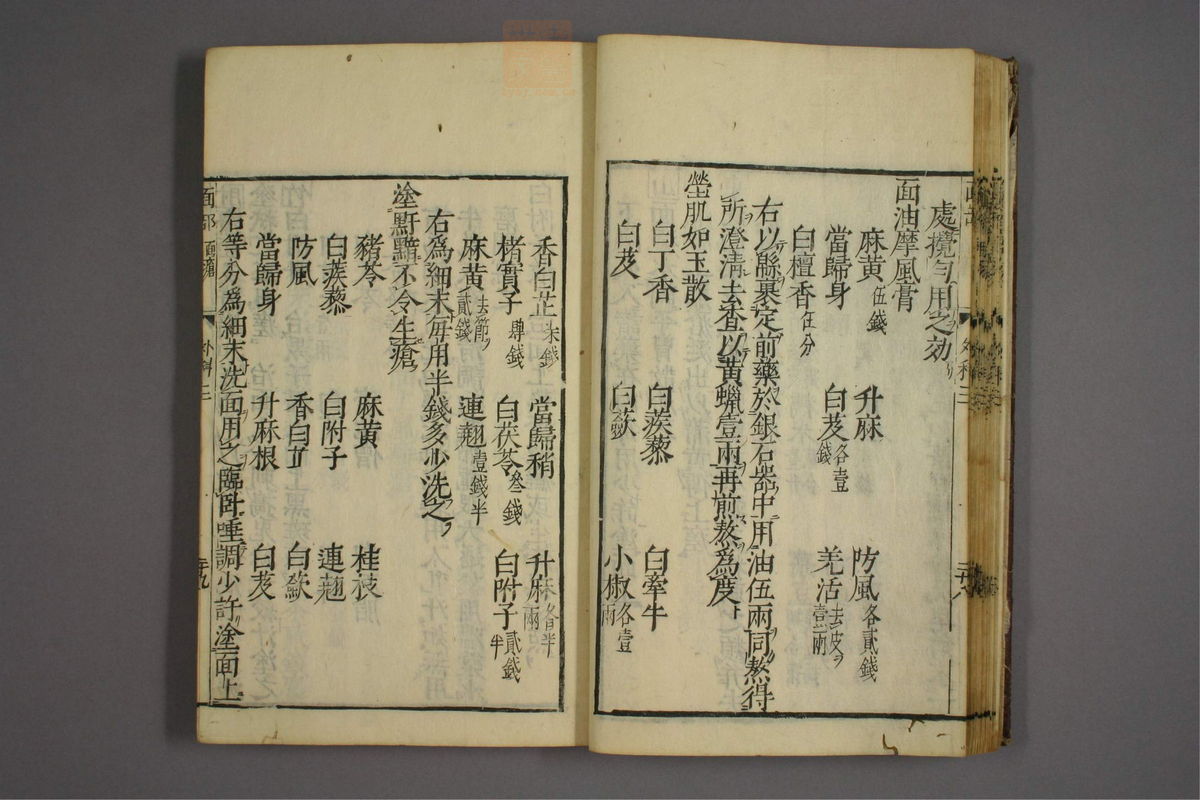 處攪勻用之効
面油摩風膏
麻黃伍錢 升麻 防風各貳錢
當歸身 白芨各壹錢 羌活去皮壹兩
白檀香伍分
右以緜裹定前藥於銀石器中用油伍兩同熬得
所澄清去查以黃蠟壹兩再煎熬爲度
瑩肌如玉散
白丁香 白蒺藜 白牽牛
白芨 白蘞 小椒各壹兩
香白芷柒錢 當歸稍 升麻各半兩
楮實子肆錢 白茯苓叁錢 白附子貳錢半
麻黃去節貳錢 連翹壹錢半
右爲細末每用半錢多少洗之
塗䵟䵳不冷生瘡
豬苓 麻黃 桂枝
白蒺藜 白附子 連翹
防風 香白芷 白蘞
當歸身 升麻根 白芨
右等分爲細末洗面用之臨臥唾調少許塗面上
面部 外科二 二十九